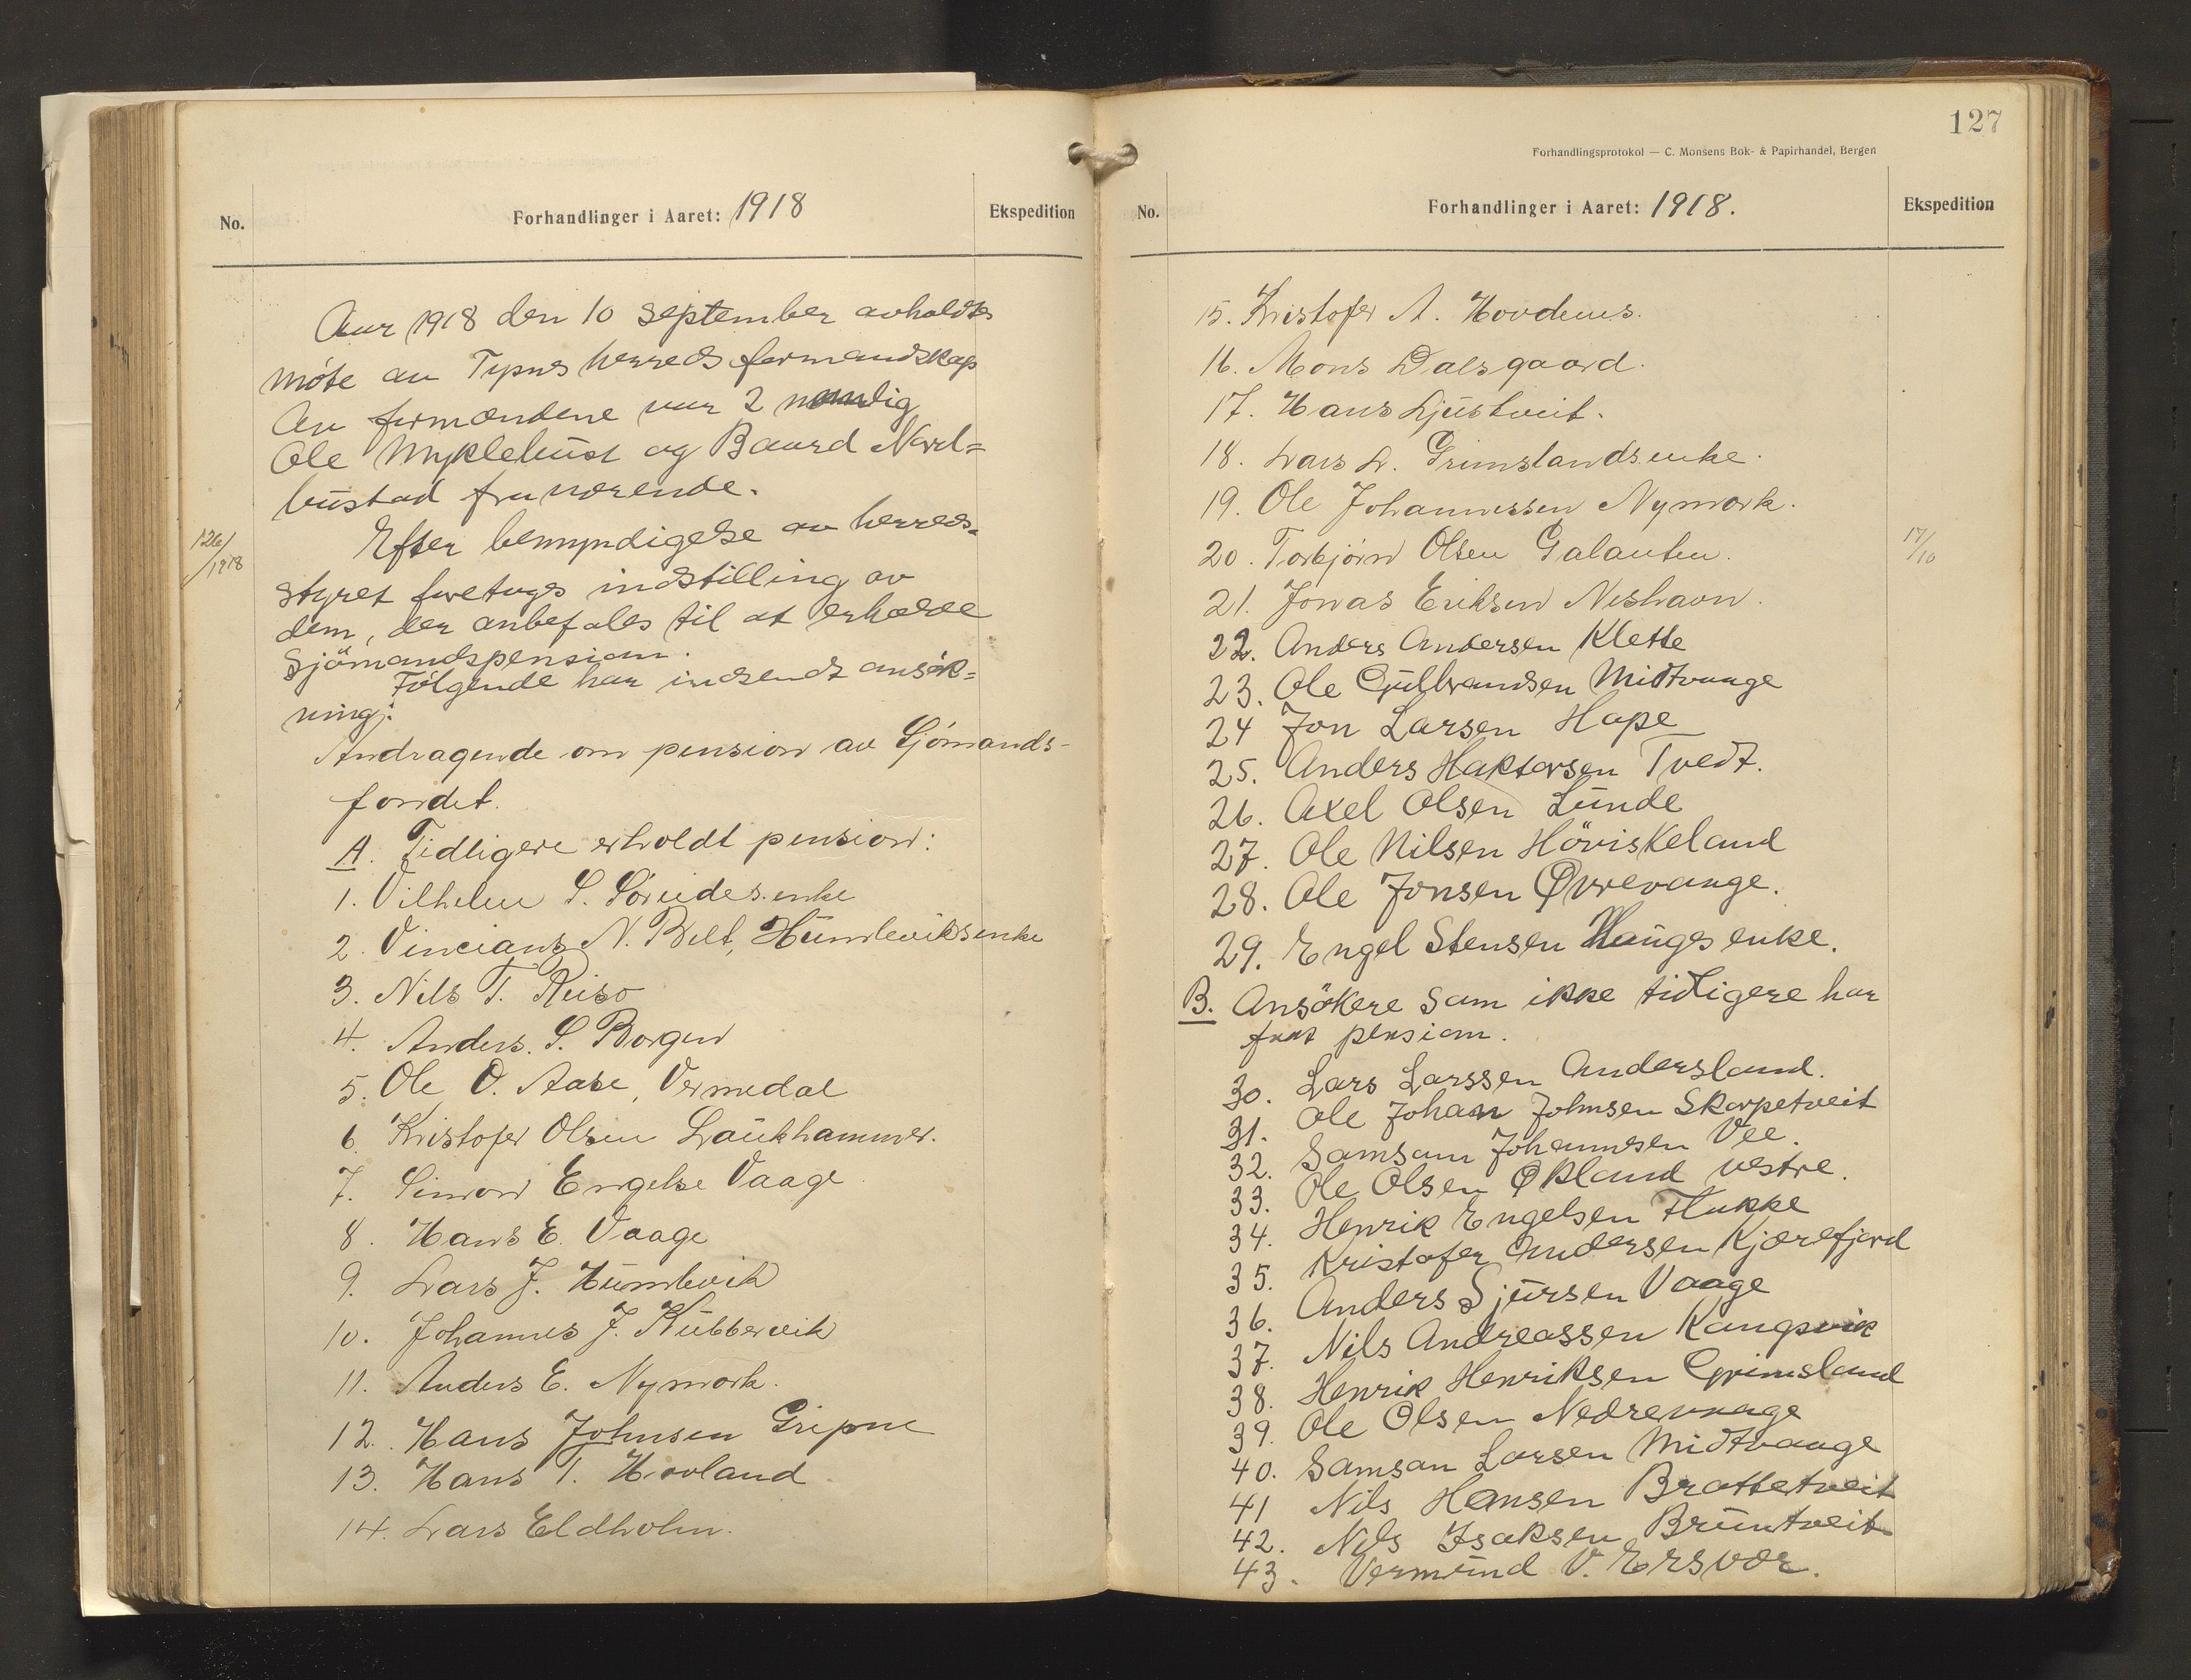 No.
Forhandlinger i Aaret: 1918
Ekspedition
Aar 1918 den 10 september avholdtes
møte av Tysnes herreds formandskap
Av formændene var 2 nemlig
Ole Myklebust og Baard Nord=
bustad fraværende.
126/1918
Efter bemyndigelse av herreds=
styret foretages indstilling av
dem, der anbefales til at erholde
Sjömandspension.
Følgende har indsendt ansøk=
ning:
Andragende om pension av Sjömands-
fondet.
A. Tidligere erholdt pension:
1. Vilhelm S. Søreides enke
2. Vincians N. Belt, Humleviks enke
3. Nils T. Reiso
4. Anders. S. Borgen
5. Ole O. Aase, Vermedal
6. Kristofer Olsen Laukhammer.
7. Simon Engelse Vaage
8. Hans E. Vaage
9. Lars J. Humlevik
10. Johannes J. Kubbervik
11. Anders E. Nymork.
12. Hans Johnsen Gripne
13. Hans T. Hovland
14. Lars Eldholm.
127
Forhandlingsprotokol — C. Monsens Bok- & Papirhandel, Bergen
No.
Forhandlinger i Aaret: 1918.
Ekspedition
15. Kristofer A. Hovdenes.
16. Mons Dalsgaard.
17. Hans Ljustveit.
18. Lars L. Grimslands enke.
19. Ole Johannessen Nymork.
20. Torbjørn Olsen Galauten.
17/10
21. Jonas Eriksen Neshavn.
22. Anders Andersen Klette
23. Ole Gulbrandsen Midtvaage
24 Jon Larsen Hope
25. Anders Haktorsen Tvedt.
26. Axel Olsen Lunde
27. Ole Nilsen Höviskeland
28. Ole Jonsen Øvrevaage.
29. Engel Stensen Hauges enke.
B. Ansökere som ikke tidligere har
faat pension.
30. Lars Larssen Andersland.
31. Ole Johan Johnsen Skarpetveit
32. Samson Johannesen Vee.
33. Ole Olsen Økland vestre.
34. Henrik Engelsen Flukke
35. Kristofer Andersen Kjærefjord
36. Anders Sjursen Vaage
37. Nils Andreassen Kangsvik
38. Henrik Henriksen Grimsland
39. Ole Olsen Nedrevaage
40. Samson Larsen Midtvaage
41 Nils Hansen Brattetveit
42. Nils Isaksen Bruntveit
43. Vermund V. Ersvær.